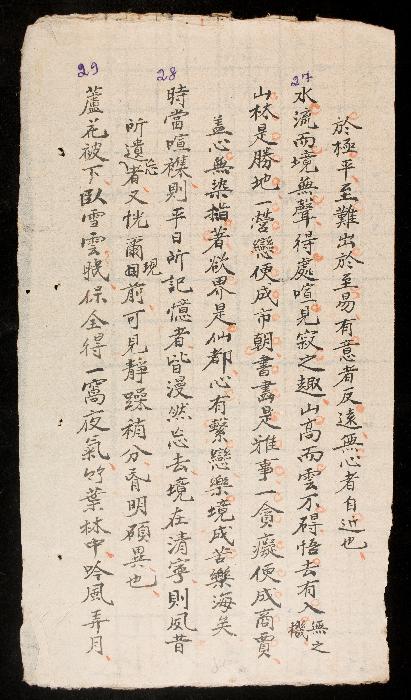 於極平至難出於至易有意者反遠無心者自近也
27
水流而境無聲得處喧見寂之趣山高而雲不碍悟去有入無之機
山林是勝地一營戀便成市朝書畫是雅事一貪癡便成商賈
盖心無染措著欲界是仙都心有繫戀樂境成苦樂海矣
28
時當喧襍則平日所記憶者皆漫然忘去境在清寧則夙昔
所遺忘者又恍爾現目前可見靜躁稍分昏明碩異也
29
蘆花被下臥雪雲眠保全得一窩夜氣竹葉林中吟風弄月